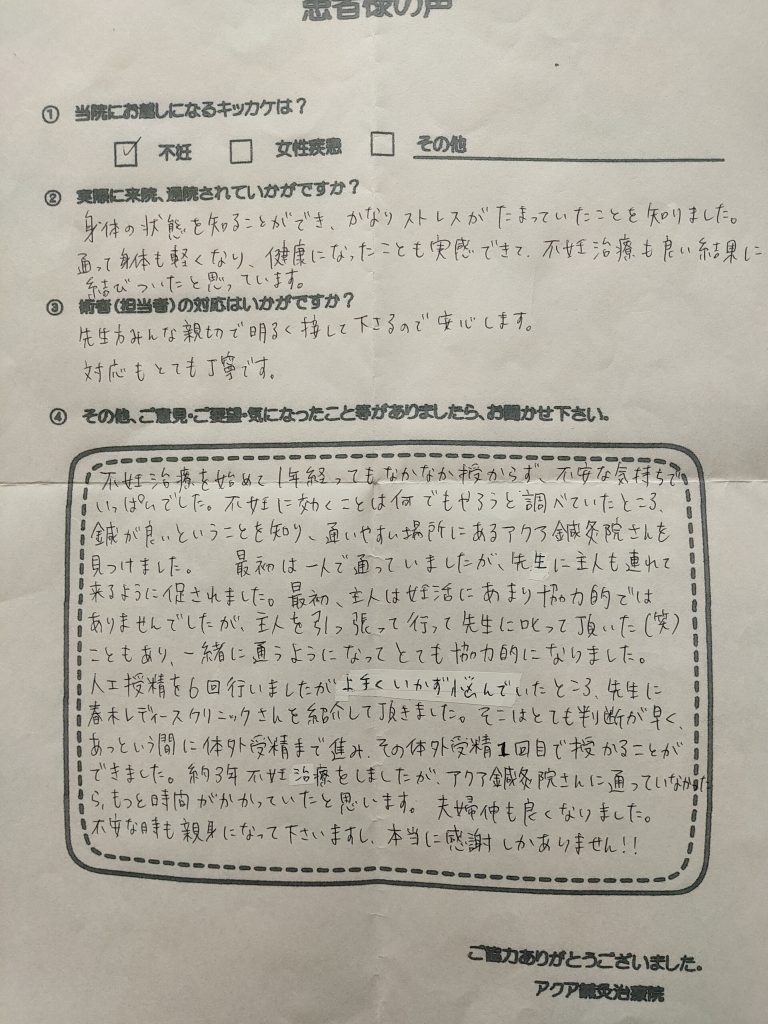 患者様の声
① 当院にお越しになるキッカケは？
☑ 不妊 □ 女性疾患 □ その他
② 実際に来院、通院されていかがですか？
身体の状態を知ることができ、かなりストレスがたまっていたことを知りました。
通って身体も軽くなり、健康になったことも実感できて、不妊治療も良い結果に
結びついたと思っています。
③ 術者(担当者)の対応はいかがですか？
先生方みんな親切で明るく接して下さるので安心します。
対応もとても丁寧です。
④ その他、ご意見・ご要望・気になったこと等がありましたら、お聞かせ下さい。
不妊治療を始めて1年経ってもなかなか授からず、不安な気持ちで
いっぱいでした。不妊に効くことは何でもやろうと調べていたところ、
鍼が良いということを知り、通いやすい場所にあるアクア鍼灸院さんを
見つけました。 最初は一人で通っていましたが、先生に主人も連れて
来るように促されました。最初、主人は妊活にあまり協力的では
ありませんでしたが、主人を引っ張って行って先生に叱って頂いた(笑)
こともあり、一緒に通うようになってとても協力的になりました。
人工授精を6回行いましたが上手くいかず悩んでいたところ、先生に
春木レディースクリニックさんを紹介して頂きました。そこはとても判断が早く、
あっという間に体外受精まで進み、その体外受精1回目で授かることが
できました。約3年不妊治療をしましたが、アクア鍼灸院さんに通っていなかった
ら、もっと時間がかかっていたと思います。 夫婦仲も良くなりました。
不安な時も親身になって下さいますし、本当に感謝しかありません!!
ご協力ありがとうございました。
アクア鍼灸治療院